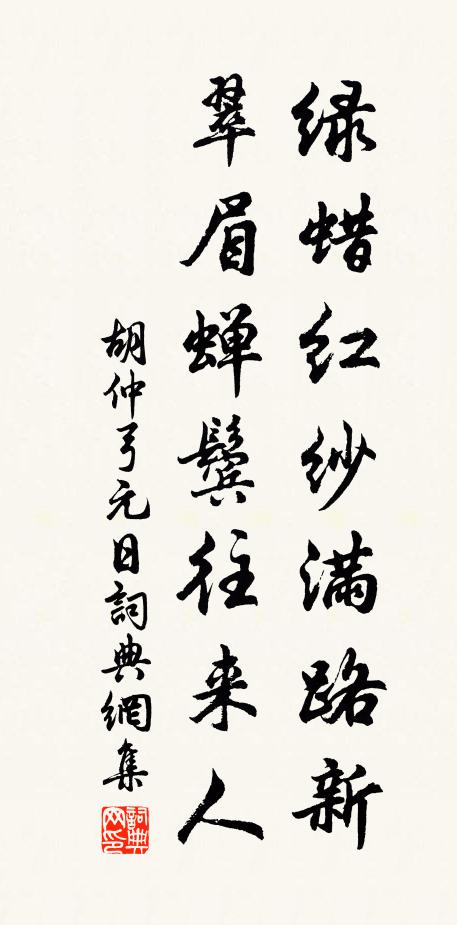 绿蜡红纱满路新
翠眉蝉鬓往来人
胡仲弓元日詞典網集
詞典网印